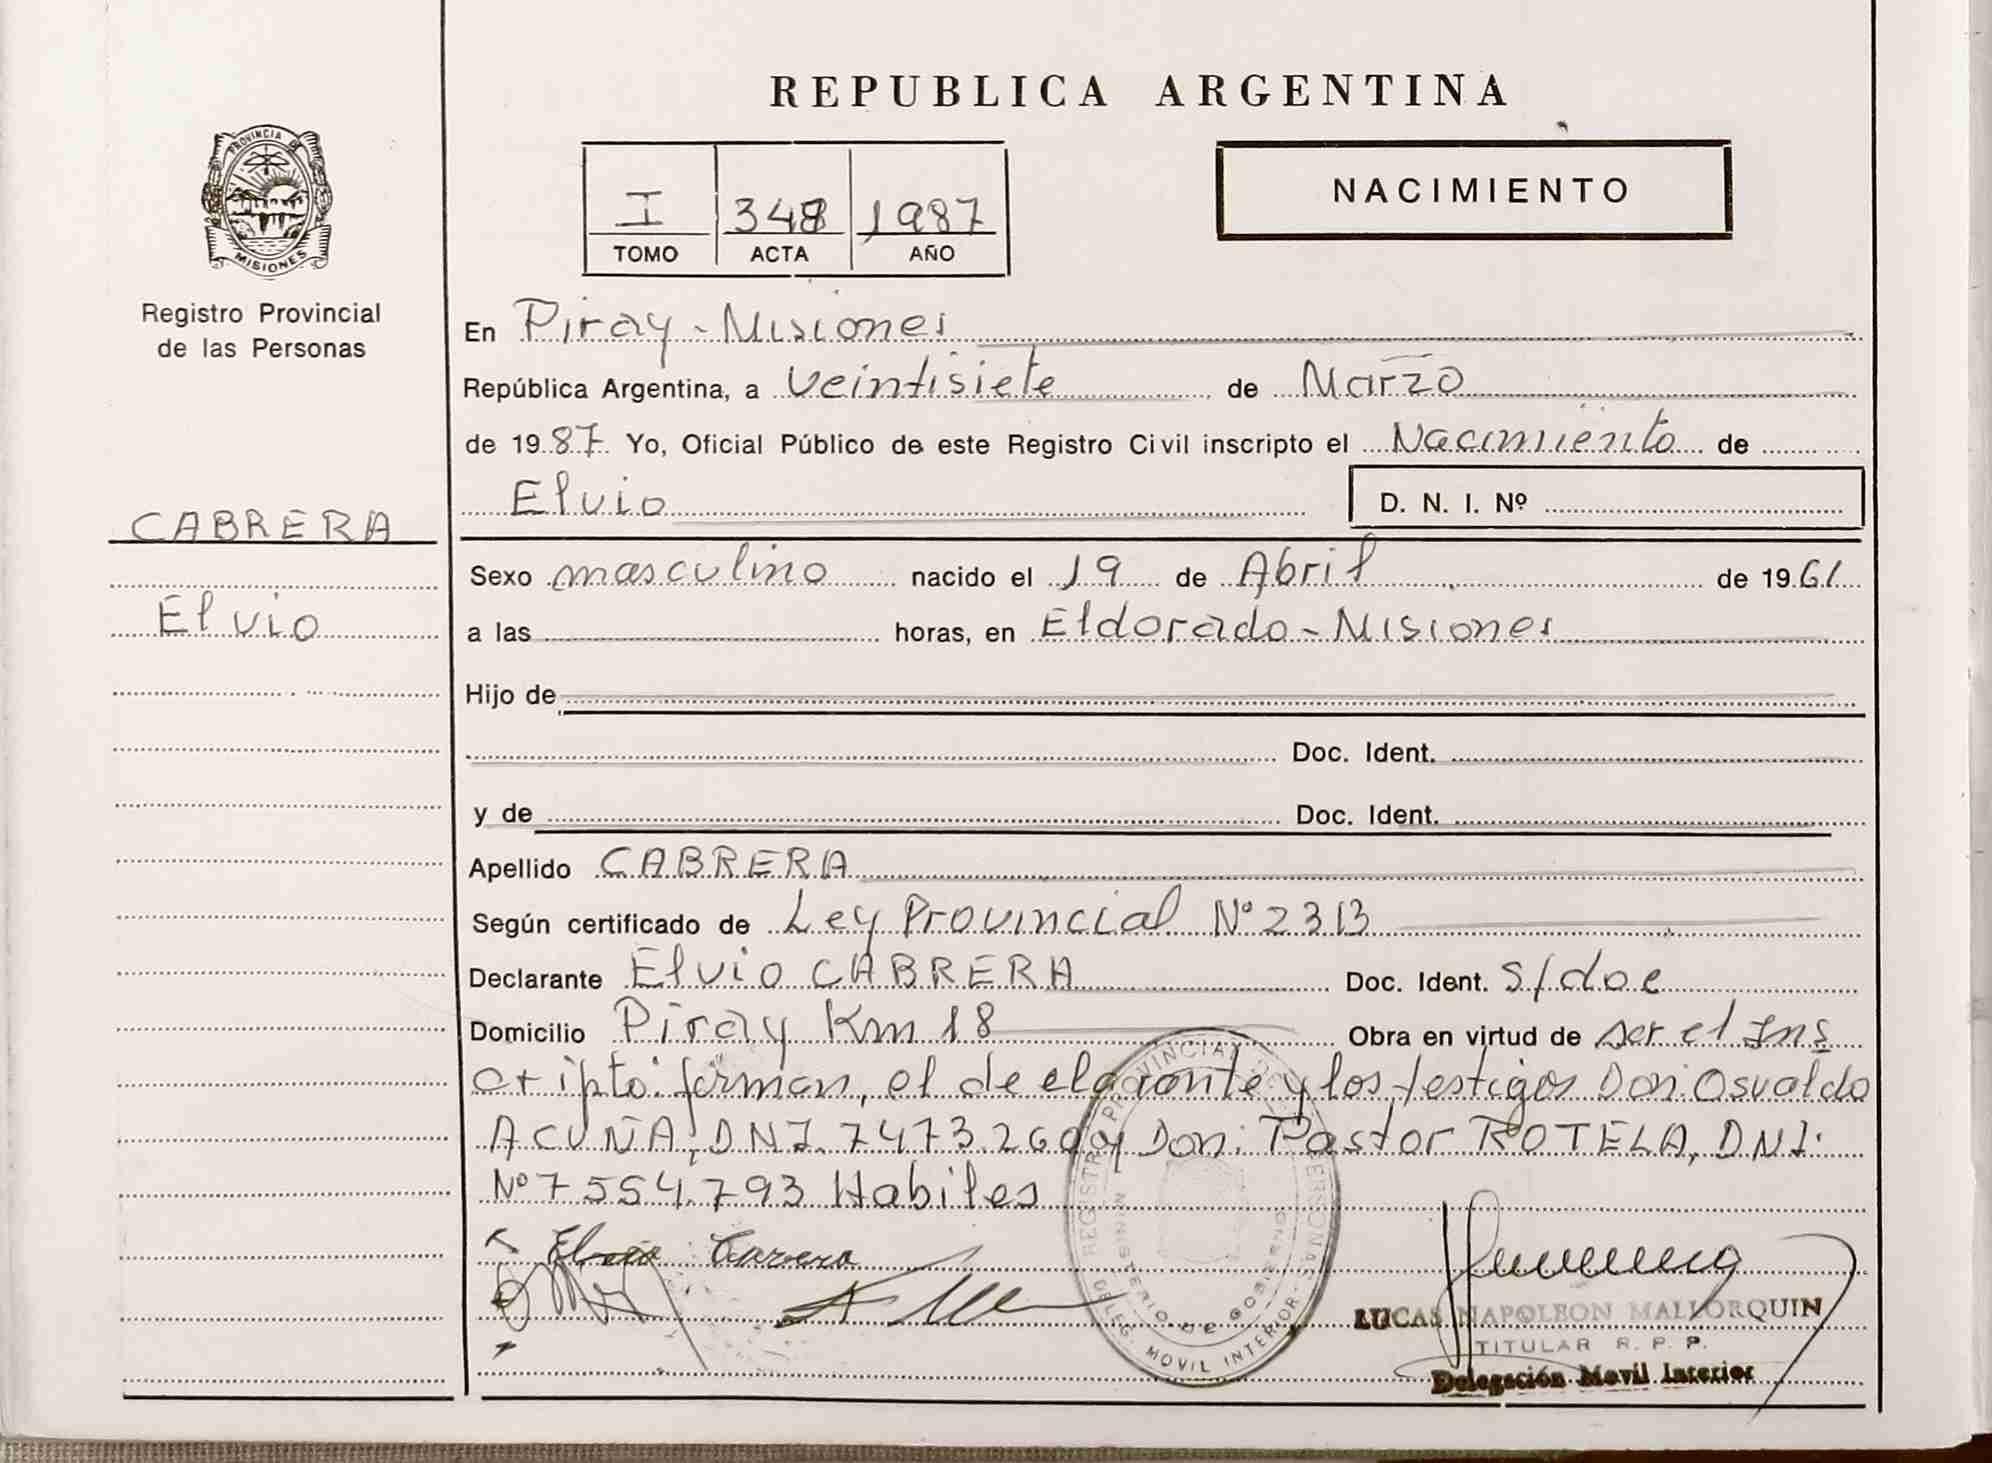 REPUBLICA ARGENTINA
PROVINCIA DE
MISIONES
Registro Provincial
de las Personas
I 348 1987
TOMO ACTA AÑO
NACIMIENTO
En Piray - Misiones
República Argentina, a Veintisiete de Marzo
de 1987 Yo, Oficial Público de este Registro Civil inscripto el Nacimiento de
Elvio D. N. I. Nº
CABRERA
Elvio
Sexo masculino nacido el 19 de Abril de 1961
a las horas, en Eldorado - Misiones
Hijo de
Doc. Ident.
y de Doc. Ident.
Apellido CABRERA
Según certificado de Ley Provincial Nº 2313
Declarante Elvio CABRERA Doc. Ident. S/doc
Domicilio Piray Km 18 Obra en virtud de ser el Ins
cripto: firman, el declarante y los testigos Don: Osvaldo
ACUÑA, DNI. 7473.260 y Don: Pastor ROTELA, DNI:
Nº 7554.793 Habiles
REGISTRO PROVINCIAL DE LAS PERSONAS
MINISTERIO DE GOBIERNO
DELEG. MOVIL INTERIOR
LUCAS NAPOLEON MALLORQUIN
TITULAR R. P. P.
Delegación Movil Interior